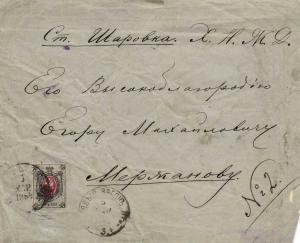 Ст. Шаровка. Х. Н. Ж. Д.
Его Высокоблагородію
Егору Михайловичу
Мержанову.
№ 2.